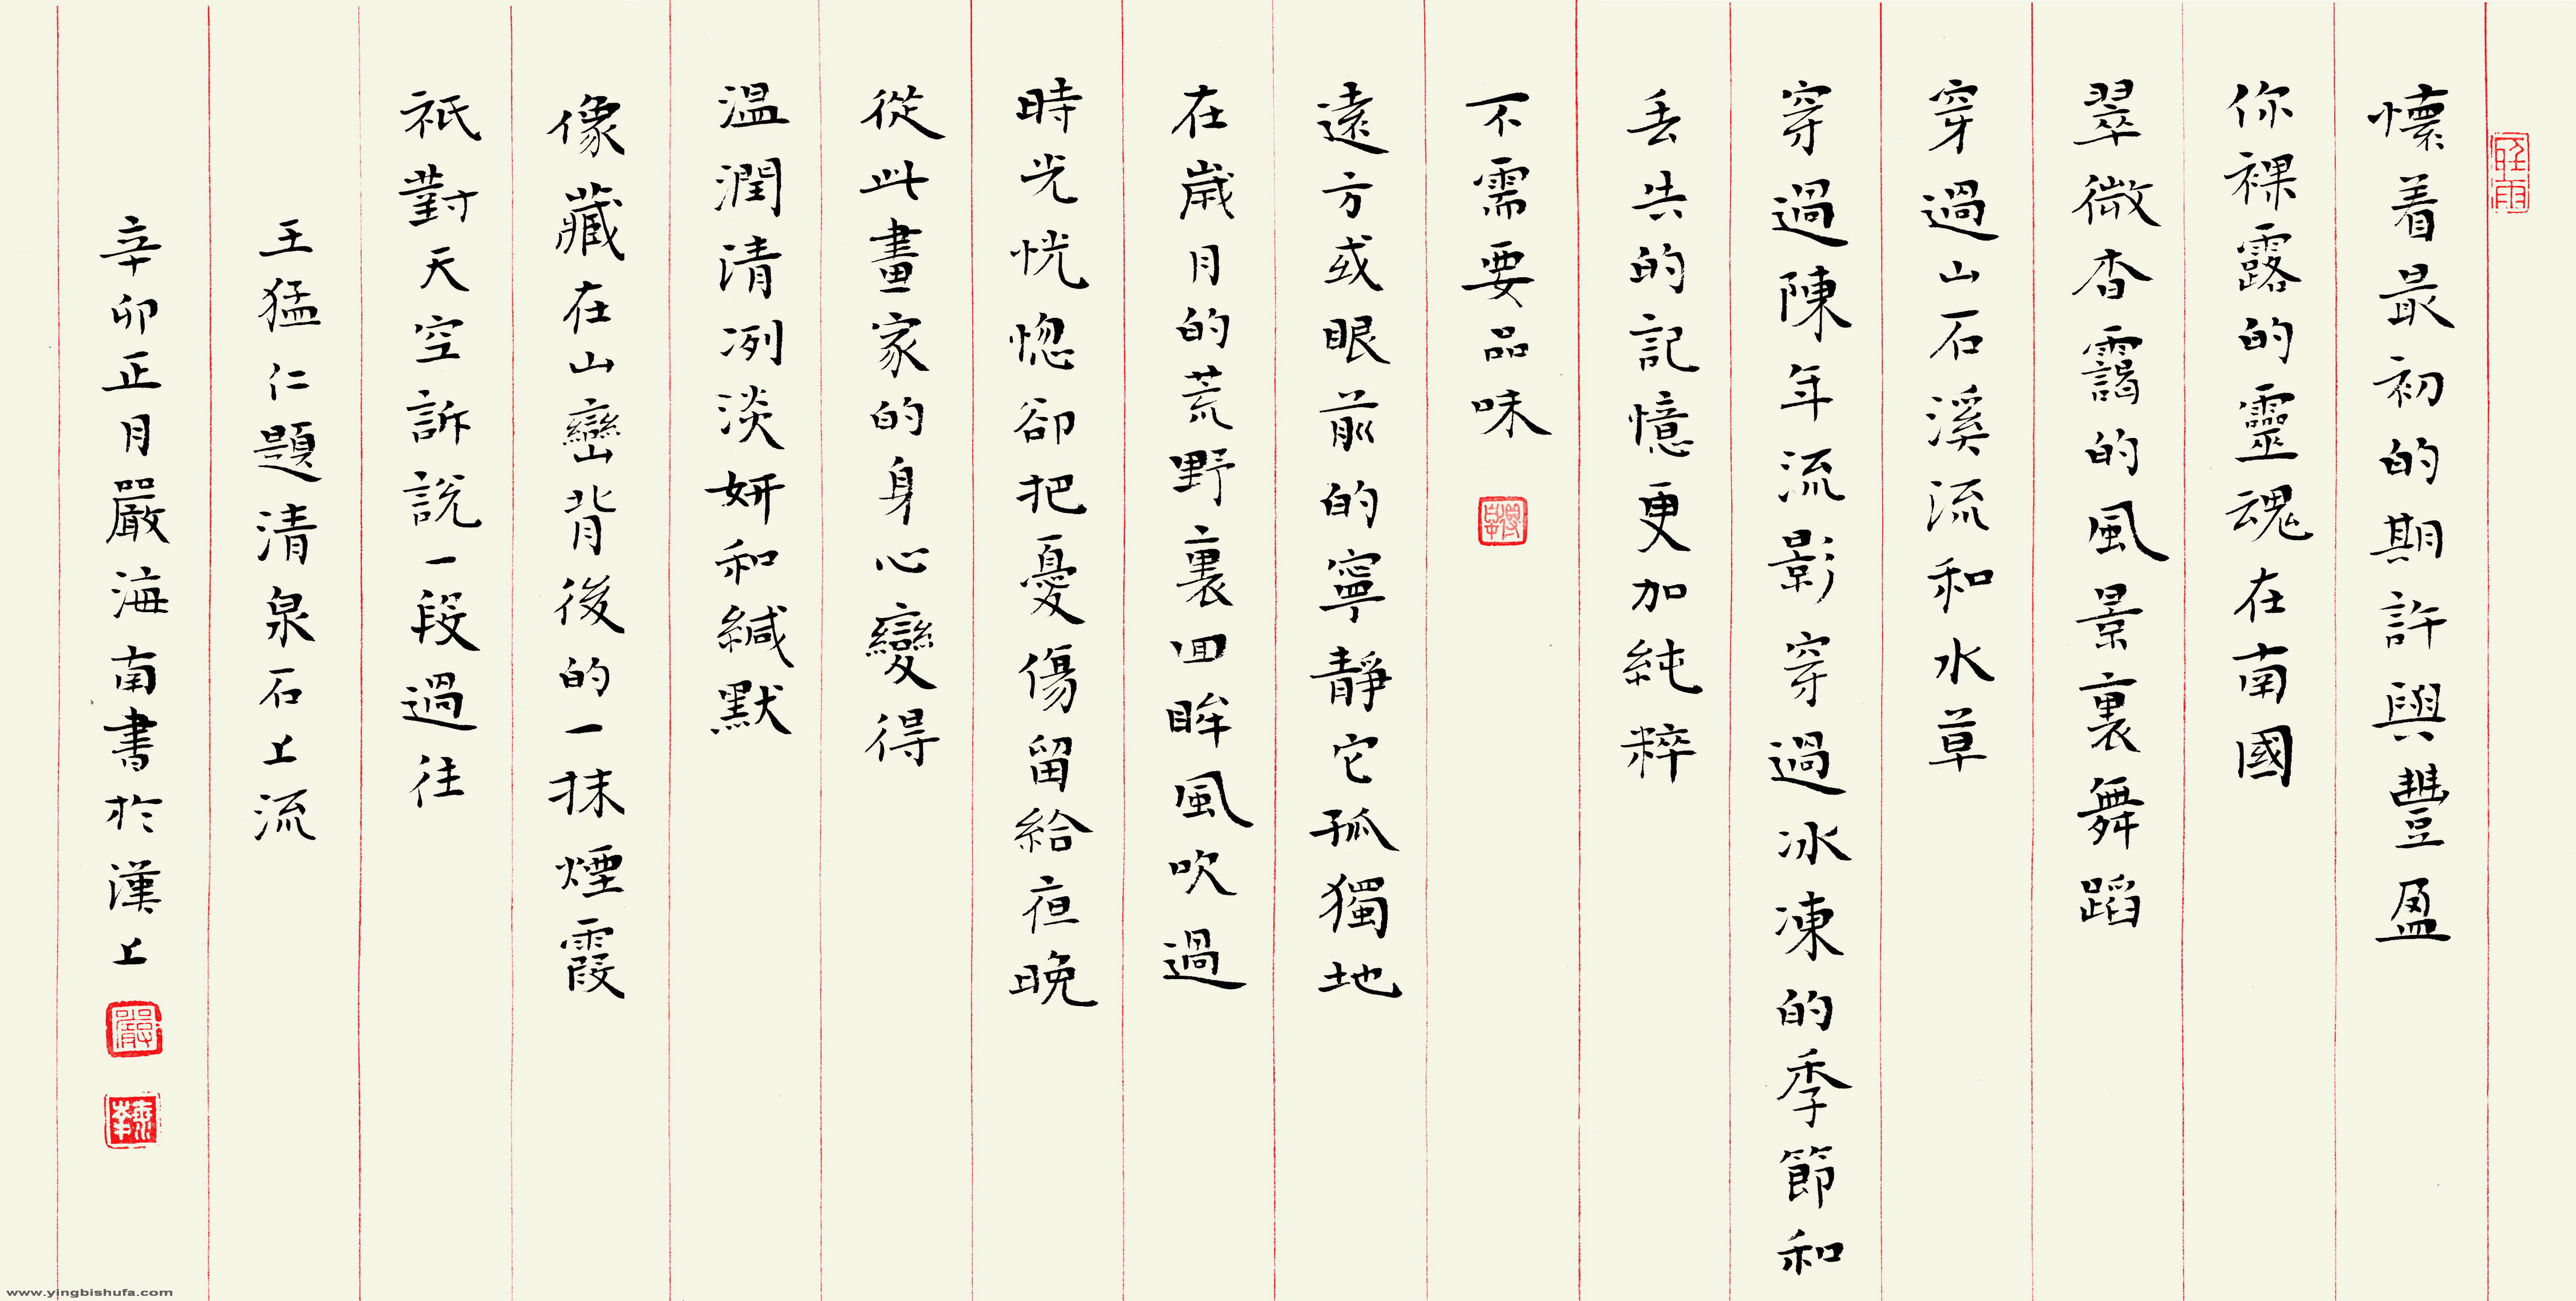 懷着最初的期許與豐盈
你裸露的靈魂在南國
翠微杳靄的風景裏舞蹈
穿過山石溪流和水草
穿過陳年流影穿過冰凍的季節和
丢失的記憶更加純粹
不需要品味
遠方或眼前的寧靜它孤獨地
在歲月的荒野裏回眸風吹過
時光恍惚卻把憂傷留給夜晚
從此畫家的身心變得
溫潤清冽淡妍和緘默
像藏在山巒背後的一抹煙霞
祇對天空訴說一段過往
王猛仁題清泉石上流
辛卯正月嚴海南書於漢上
www.yingbishufa.com